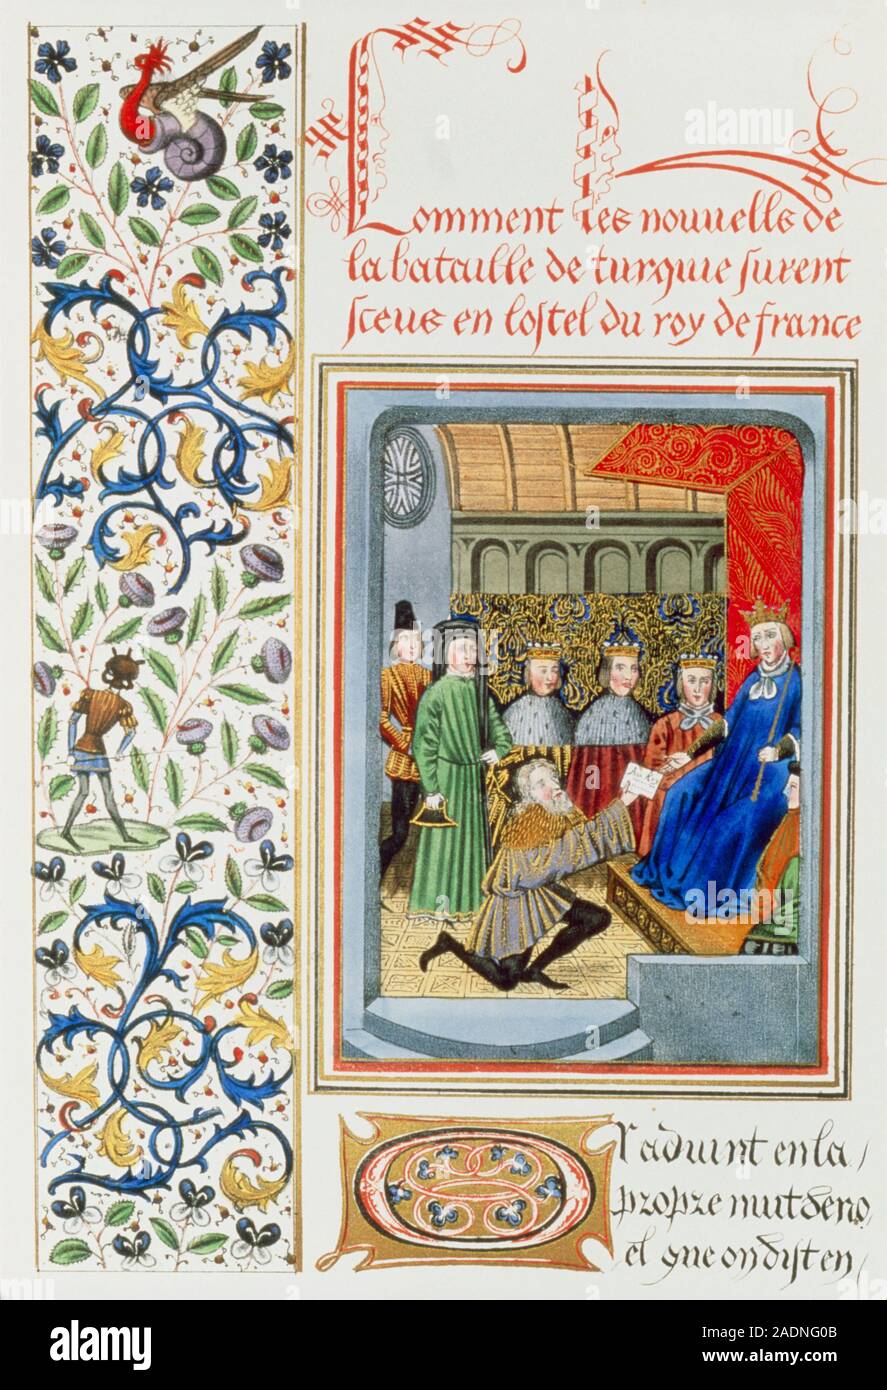 Comment les nouuells de
la bataille de turquie furent
sceus en lostel du roy de france
Au Roy
Or aduint en la
propre nuit de no
el que on dist en
alamy
Image ID: 2ADNG0B
www.alamy.com